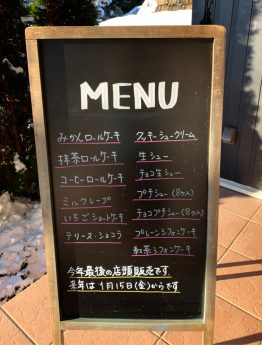 MENU
みかんロールケーキ
抹茶ロールケーキ
コーヒーロールケーキ
ミルクレープ
いちごショートケーキ
テリーヌ・ショコラ
クッキーシュークリーム
生シュー
チョコ生シュー
プチシュー(8ヶ入)
チョコプチシュー(8ヶ入)
プレーンシフォンケーキ
紅茶シフォンケーキ
今年最後の店頭販売です
来年は1月15日(金)からです